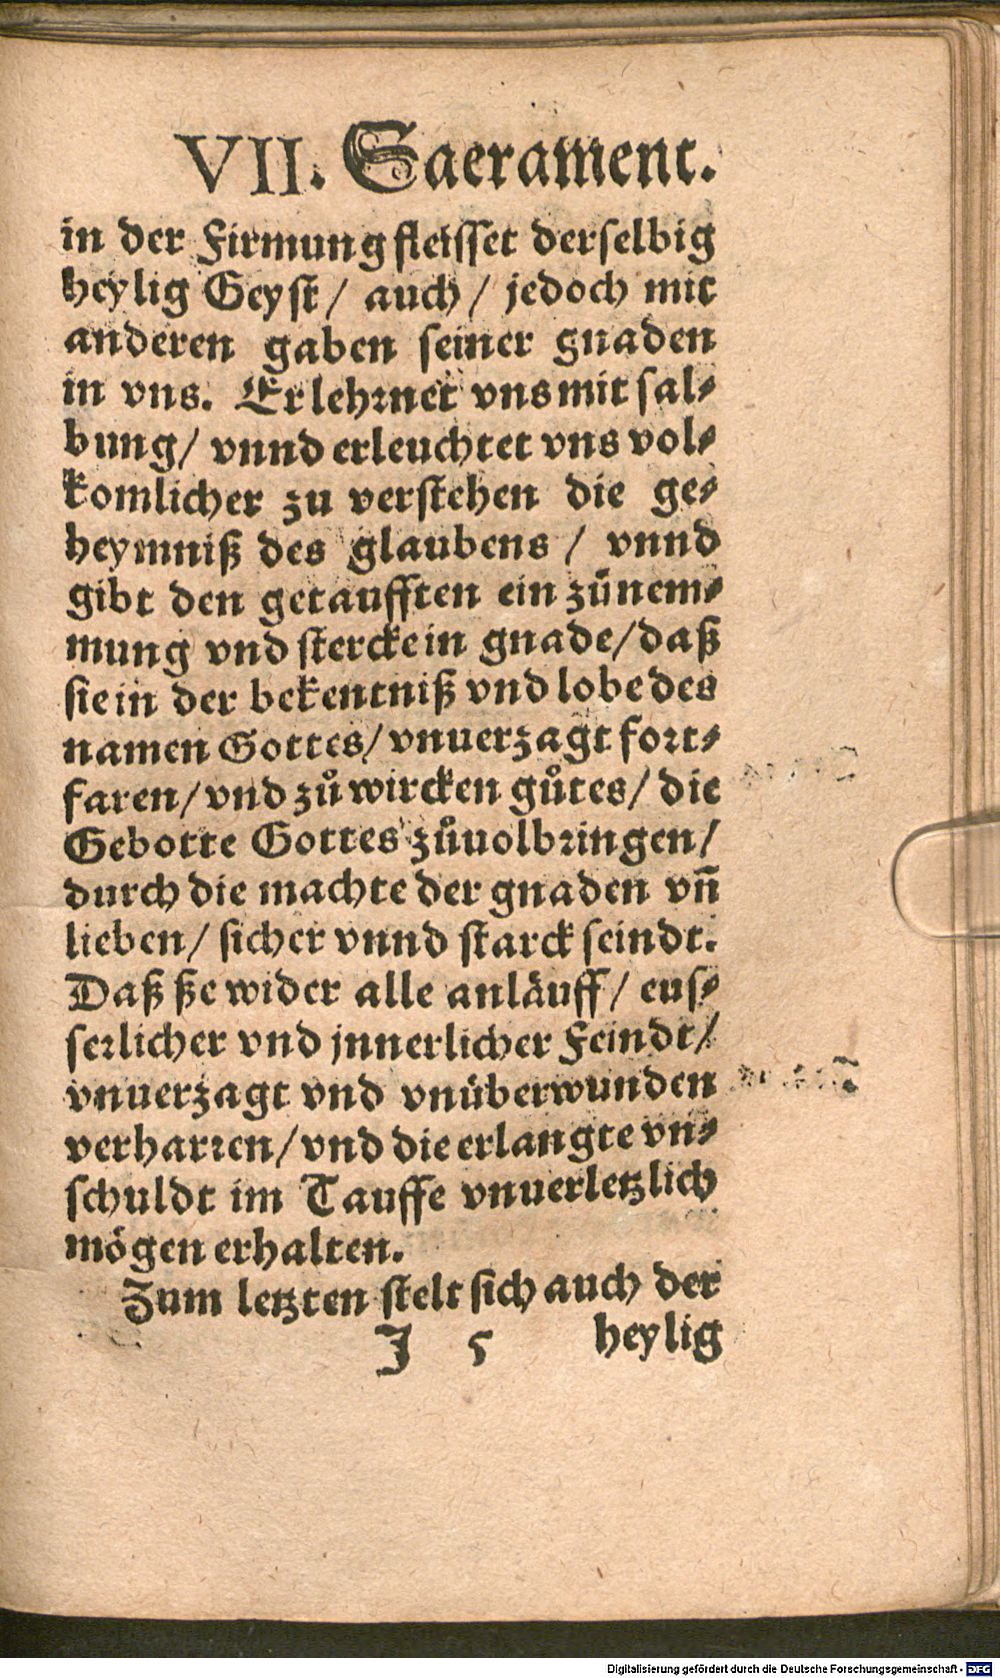 VII. Sacrament.
in der Firmung fleisset derselbig
heylig Geyst / auch / jedoch mit
anderen gaben seiner gnaden
in vns. Er lehrnet vns mit sal⸗
bung / vnnd erleuchtet vns vol⸗
komlicher zu verstehen die ge⸗
heymniß des glaubens / vnnd
gibt den getaufften ein zůnem⸗
mung vnd stercke in gnade / daß
sie in der bekentniß vnd lobe des
namen Gottes / vnuerzagt fort⸗
faren / vnd zů wircken gůtes / die
Gebotte Gottes zůuolbringen /
durch die machte der gnaden vñ
lieben / sicher vnnd starck seindt.
Daß ße wider alle anläuff / eus⸗
serlicher vnd jnnerlicher Feindt /
vnuerzagt vnd vnüberwunden
verharren / vnd die erlangte vn⸗
schuldt im Tauffe vnuerletzlich
mögen erhalten.
Zum letzten stelt sich auch der
J 5 heylig
Digitalisierung gefördert durch die Deutsche Forschungsgemeinschaft - DFG